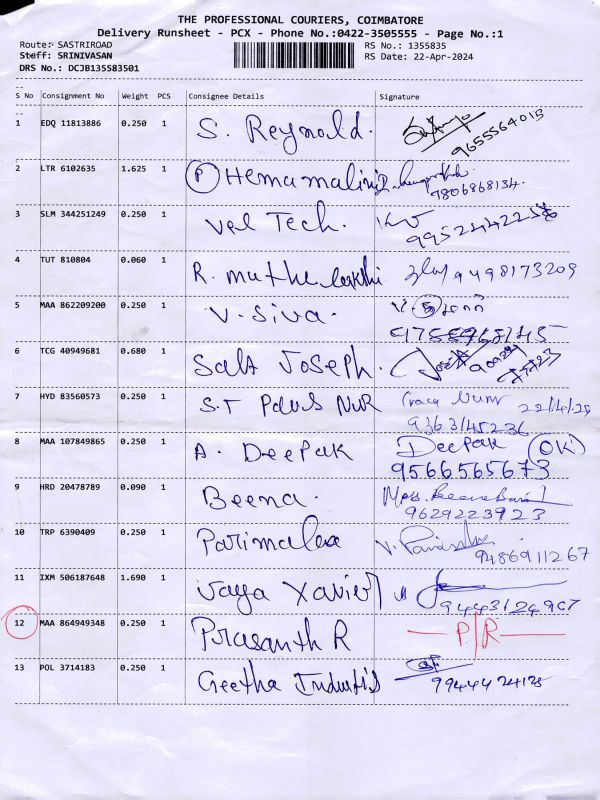 THE PROFESSIONAL COURIERS, COIMBATORE
Delivery Runsheet - PCX - Phone No.:0422-3505555 - Page No.:1
Route: SASTRIROAD RS No.: 1355835
Steff: SRINIVASAN RS Date: 22-Apr-2024
DRS No.: DCJB135583501
S No Consignment No Weight PCS Consignee Details Signature
1 EDQ 11813886 0.250 1 S. Reynold. 9655564015
2 LTR 6102635 1.625 1 P Hemamalini 9806868134.
3 SLM 344251249 0.250 1 Vel Tech.
4 TUT 810804 0.060 1 R. muthu lakshi 9498173209
5 MAA 862209200 0.250 1 V. Siva.
6 TCG 40949681 0.680 1 Sala Joseph.
7 HYD 83560573 0.250 1 S.T Pauls NUR
9363145236
8 MAA 107849865 0.250 1 A. Deepak Deepak OK
9566565673
9 HRD 20478789 0.090 1 Beena.
9629223923
10 TRP 6390409 0.250 1 Parimalaa V.
9486911267
11 IXM 506187648 1.690 1 Jaya Xavier
9443124967
12 MAA 864949348 0.250 1 Prasanth R P/R
13 POL 3714183 0.250 1 Geetha Industis